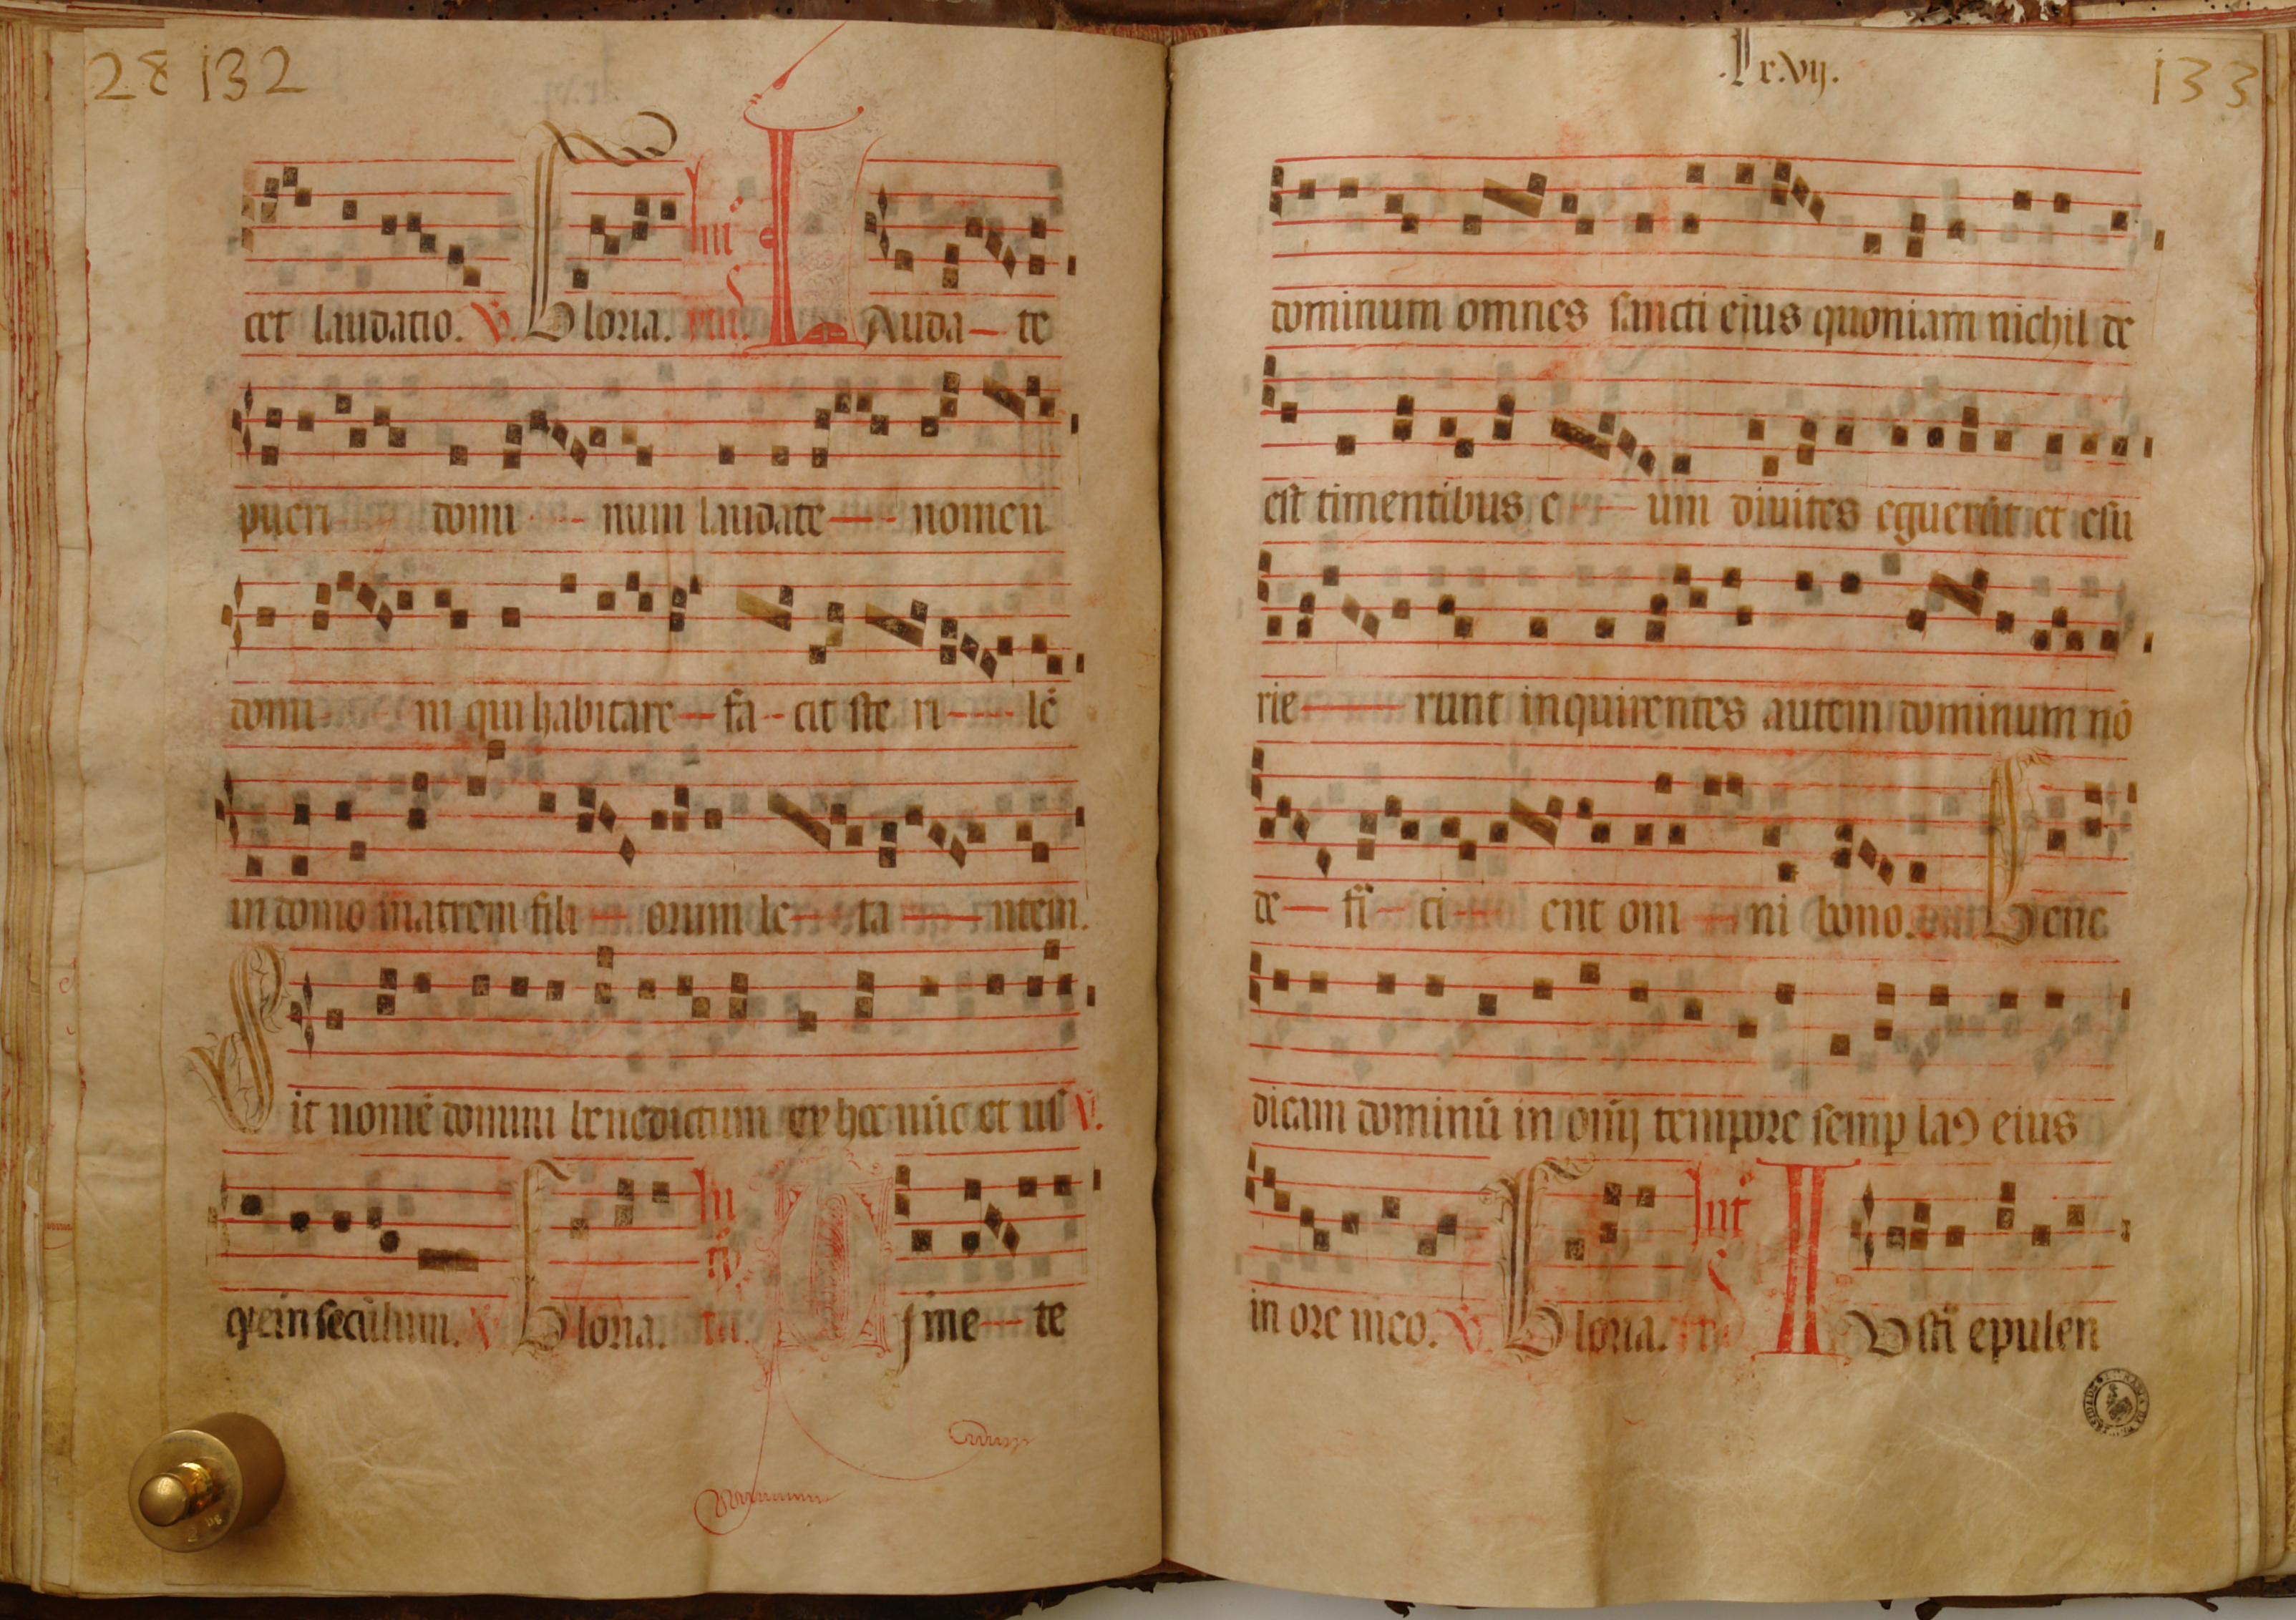 28 132
cet laudatio. V. Gloria. Int̄ Lauda—te
pueri domi - - num laudate—- nomen
domi ni qui habitare—fa-cit ste ri-—-lē
in domo matrem fili — orum le—ta —ntem.
Sit nomē domini benedictum ex hoc nūc et us V.
q̄ in seculum. V. Gloria. Timete
.lxvij.
133
dominum omnes sancti eius quoniam nichil de
est timentibus e - — um diuites eguerūt et esu
rie—— runt inquirentes autem dominum nō
de— fi - ci - ent om — ni bono. Bene
dicam dominū in om̄ij tempore semp laꝰ eius
in ore meo. V. Gloria. Int̄ Iusti epulen